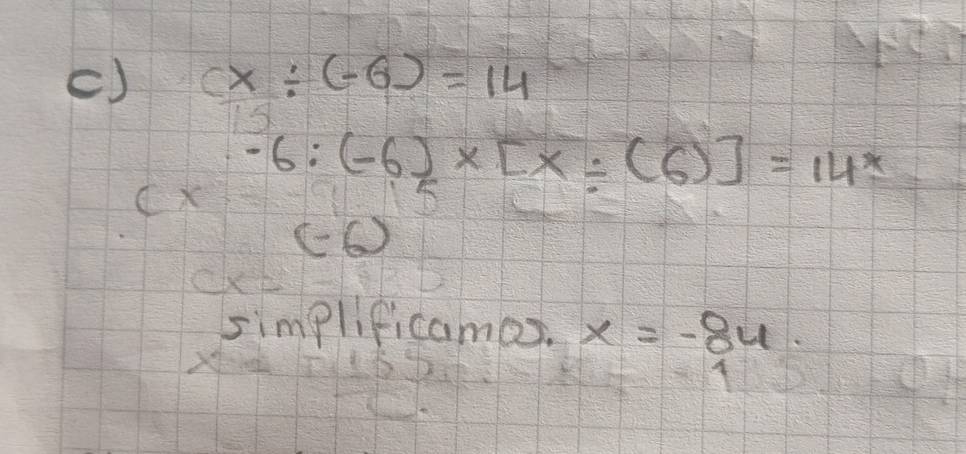 c) x ÷ (-6) = 14
-6 : (-6) × [x ÷ (6)] = 14 ×
(-6)
simplificamos. x = -84.